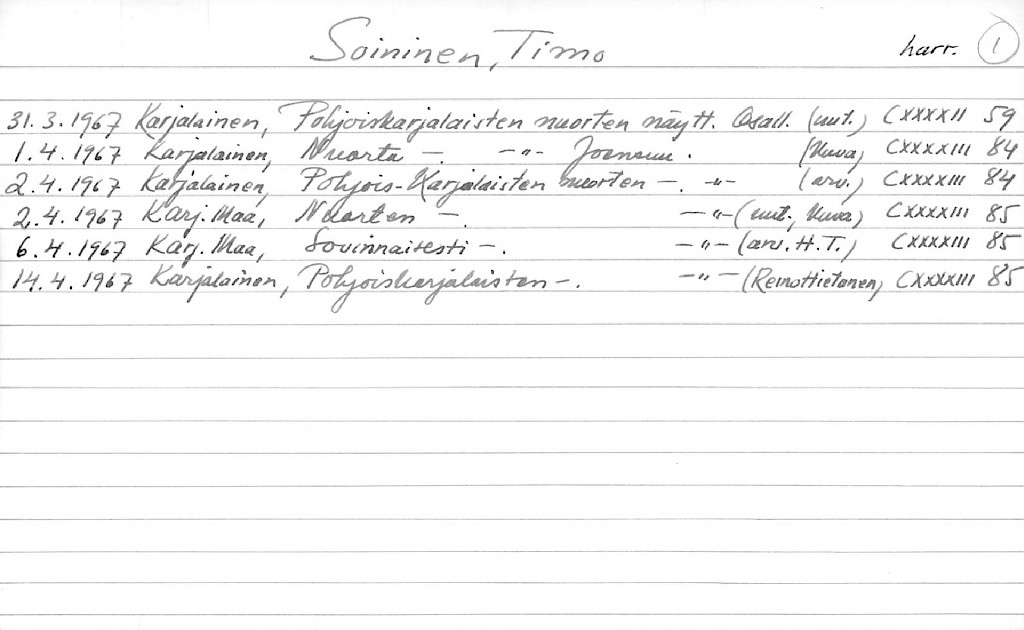 Soininen, Timo harr. 1
31.3.1967 Karjalainen, Pohjoiskarjalaisten nuorten näytt. Osall. (uut.) CXXXXII 59
1.4.1967 Karjalainen, Nuorta — . —"— Joensuu. (kuva) CXXXXIII 84
2.4.1967 Karjalainen, Pohjois-Karjalaisten nuorten — . —"— (arv.) CXXXXIII 84
2.4.1967 Karj. Maa, Nuorten — —"— (uut., kuva) CXXXXIII 85
6.4.1967 Karj. Maa, Sovinnaisesti — . —"— (arv. H.T.) CXXXXIII 85
14.4.1967 Karjalainen, Pohjoiskarjalaisten — . —"— (Reino Hietanen) CXXXXIII 85